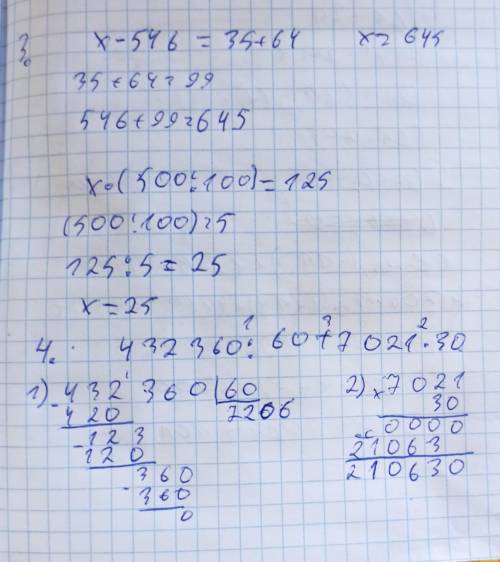 3. x - 546 = 35+64 x = 645
35+64=99
546+99=645
x•(500:100)=125
(500:100)=5
125:5=25
x=25
4. 432360:¹60+³7021•²30
1) - 432'360 | 60
420 7206
- 123
120
- 360
360
0
2) x 7021
30
+ 0000
21063
210630